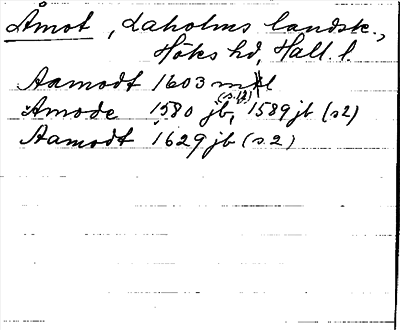 Åmot, Laholms landsk.,
Höks hd, Hall. l.
Aamodt 1603 ml
Amode 1580 jb, 1589 jb (s2)
Aamodt 1629 jb (s.2)